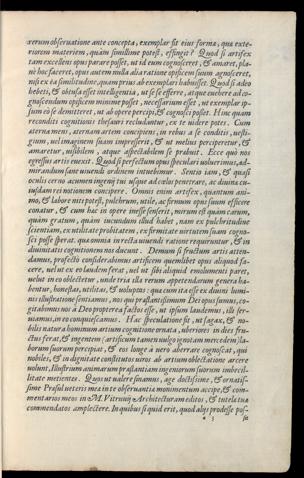 rerum obseruatione ante concepta, exemplar sit eius forma, qua exte-
riorem materiem, quàm simillime potest, effingit? Quod si artifex
tam excellens opus parare posset, ut id eum cognosceret, & amaret, pla-
nè hoc faceret, opus autem nulla alia ratione opificem suum agnosceret,
nisi ex ea similitudine, quam prius ab exemplari habuisset. Quod si adeo
hebetis, & obtusa esset intelligentia, ut se se efferre, atque euehere ad co-
gnoscendum opificem minime posset, necessarium esset, ut exemplar ip-
sum eò se demitteret, ut ab opere percipi, & cognosci posset. Hinc quam
reconditi cognitionis thesauri recludantur, ex te uidere potes. Cum
æterna mens, æternam artem concipiens, in rebus à se conditis, uesti-
gium, uel imaginem suam impresserit, & ut melius perciperetur, &
amaretur, uisibilem, atque aspectabilem se prabuit. Ecce quò nos
egressus artis euexit. Quod si perfectum opus speculari uoluerimus, ad-
mirandum sane uiuendi ordinem intuebimur. Sentio iam, & quasi
oculis cerno acumen ingenij tui usque ad cœlos penetrare, ac diuina cu-
iusdam rei notionem concipere. Omnis enim artifex, quantum ani-
mo, & labore niti potest, pulchrum, utile, ac firmum opus suum efficere
conatur, & cum hæc in opere inesse senserit, mirum est quàm carum,
quàm gratum, quàm iucundum illud habet, nam ex pulchritudine
scientiam, ex utilitate probitatem, ex firmitate uirtutem suam cogno-
sci posse sperat. quæ omnia in recta uiuendi ratione requiruntur, & in
diuinitatis cognitionem nos ducunt. Demum si fructum artis atten-
damus, profectò considerabimus artificem quemlibet opus aliquod fa-
cere, uel ut ex eo laudem ferat, uel ut sibi aliquid emolumenti paret,
uel ut in eo oblectetur, unde tria illa rerum appetendarum genera ha-
bentur, honestas, utilitas, & uoluptas: quæ cum ita esse ex diuini lumi-
nis illustratione sentiamus, nos qui præstantissimum Dei opus sumus, co-
gitabimus nos à Deo propterea factos esse, ut ipsum laudemus, illi ser-
uiamus, in eo conquiescamus. Hac speculatione fit, ut sagax, & no-
bilis natura hominum artium cognitione ornata, uberiores in dies fru-
ctus ferat, & ingentem (artificum tamen uulgo ignotam mercedem) la-
borum suorum percipiat, & eos longe à uero aberrare cognoscat, qui
nobiles, & in dignitate constitutos uiros ab artium oblectatione arcere
uolunt, Illustrium animarum præstantiam ingeniorum suorum imbecil-
litate metientes. Quos ut ualere sinamus, age doctissime, & ornatis-
sime Præsul ueteris meæ in te obseruantiæ monumentum accipe, & com-
mentarios meos in M. Vitruuij Architecturam editos, & tutelæ tuæ
commendatos amplectere. In quibus si quid erit, quod alijs prodesse pos-
* 3 sit